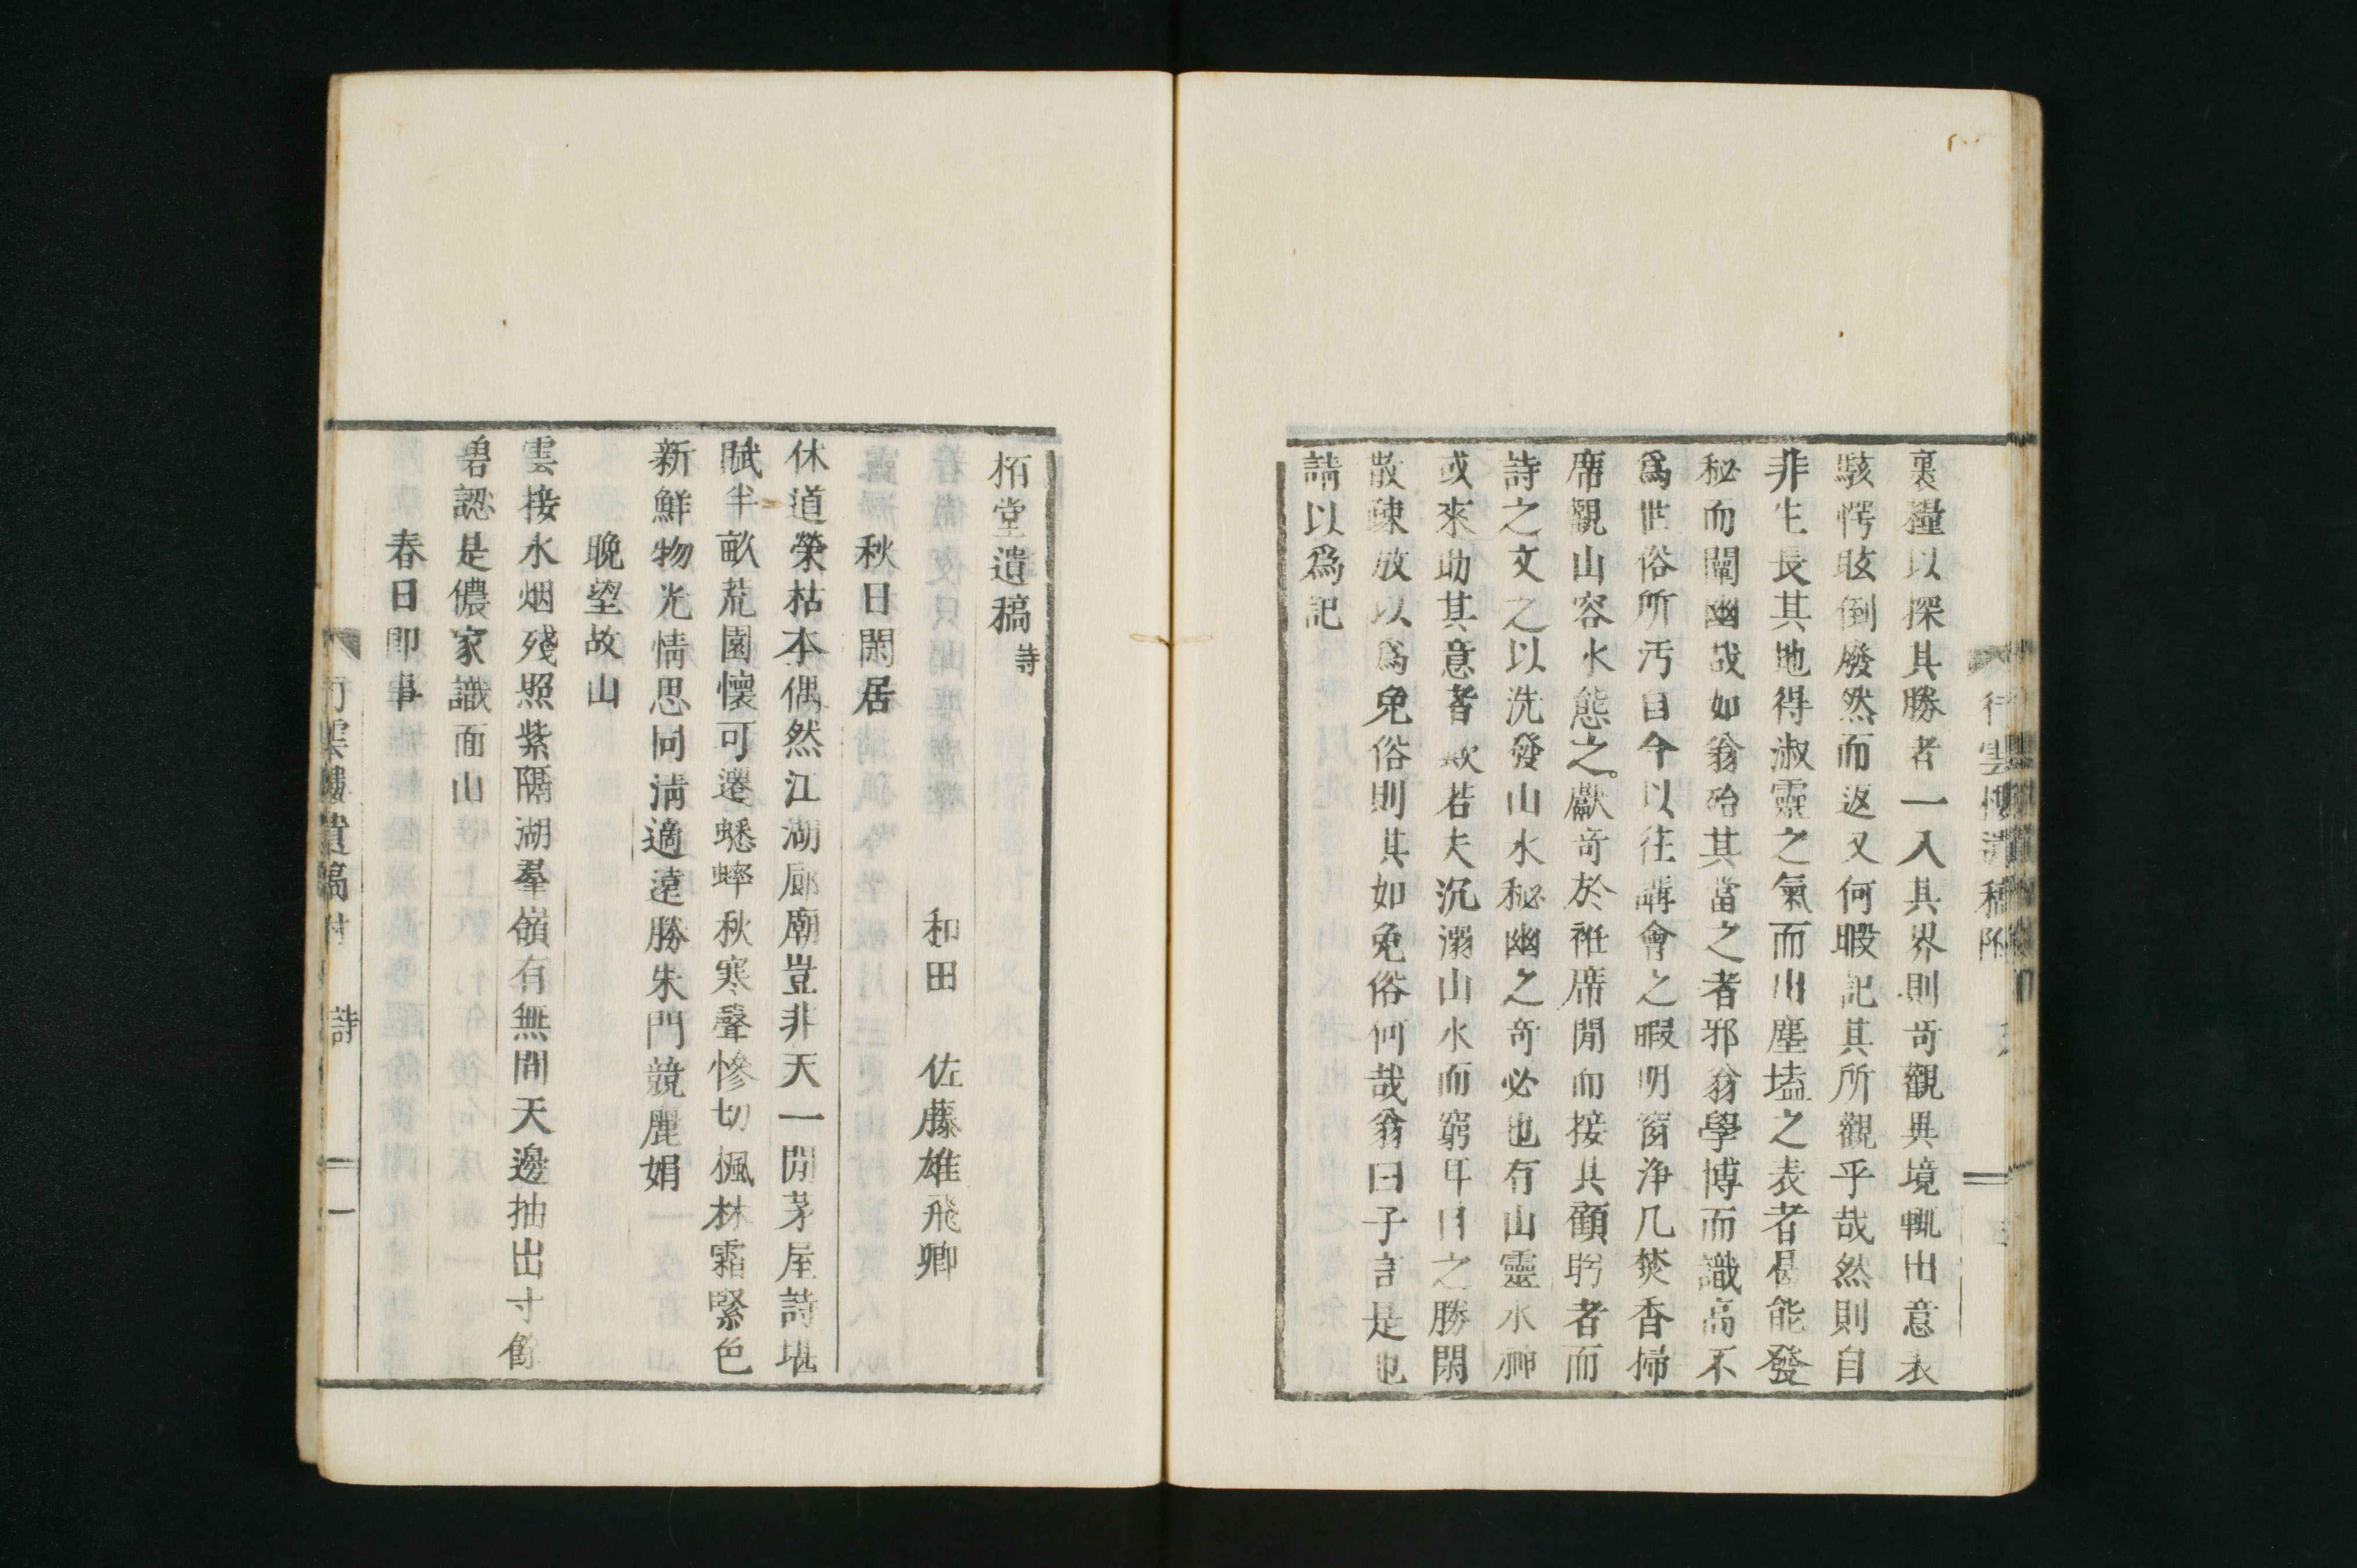 裏糧以探其勝者一入其界則奇觀異境輒出意表
駭愕眩倒廢然而返又何暇記其所觀乎哉然則自
非生長其地得淑靈之氣而出塵壒之表者曷能發
秘而闡幽哉如翁殆其當之者邪翁學博而識高不
爲世俗所汚自今以往講會之暇明窗浄几焚香掃
席觀山容水態之獻奇於袵席閒而接其顧眄者而
詩之文之以洗發山水秘幽之奇必也有山靈水神
或來助其意者歟若夫沉溺山水而窮耳目之勝閑
散疎放以爲免俗則其如免俗何哉翁曰子言是也
請以爲記
栢堂遺稿 詩
和田 佐藤雄飛卿
秋日閑居
休道榮枯本偶然江湖廊廟豈非天一閒茅屋詩堪
賦半畝荒園懷可遷蟋蟀秋寒聲慘切楓林霜緊色
新鮮物光情思同淸適遠勝朱門競麗娟
晩望故山
雲接水烟殘照紫隔湖羣嶺有無間天邊抽出寸餘
碧認是儂家識面山
春日即事
行雲樓遺稿附 詩 一